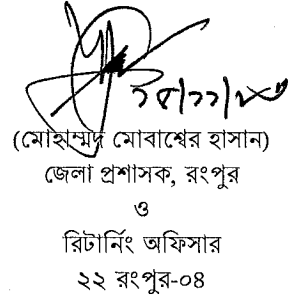 (মোহাম্মদ মোবাশ্বের হাসান)
জেলা প্রশাসক, রংপুর
ও
রিটার্নিং অফিসার
২২ রংপুর-০৪